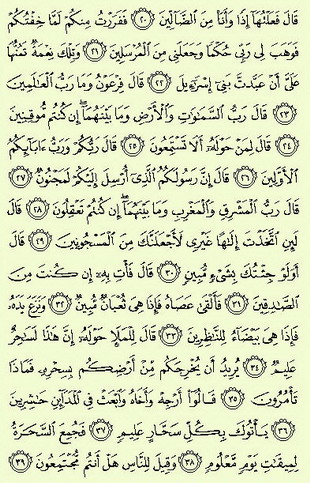 قَالَ فَعَلْتُهَآ إِذًا وَأَنَا۠ مِنَ ٱلضَّآلِّينَ ﴿٢٠﴾ فَفَرَرْتُ مِنكُمْ لَمَّا خِفْتُكُمْ
فَوَهَبَ لِى رَبِّى حُكْمًا وَجَعَلَنِى مِنَ ٱلْمُرْسَلِينَ ﴿٢١﴾ وَتِلْكَ نِعْمَةٌ تَمُنُّهَا
عَلَىَّ أَنْ عَبَّدتَّ بَنِىٓ إِسْرَٰٓءِيلَ ﴿٢٢﴾ قَالَ فِرْعَوْنُ وَمَا رَبُّ ٱلْعَٰلَمِينَ
﴿٢٣﴾ قَالَ رَبُّ ٱلسَّمَٰوَٰتِ وَٱلْأَرْضِ وَمَا بَيْنَهُمَآ إِن كُنتُم مُّوقِنِينَ
﴿٢٤﴾ قَالَ لِمَنْ حَوْلَهُۥٓ أَلَا تَسْتَمِعُونَ ﴿٢٥﴾ قَالَ رَبُّكُمْ وَرَبُّ ءَابَآئِكُمُ
ٱلْأَوَّلِينَ ﴿٢٦﴾ قَالَ إِنَّ رَسُولَكُمُ ٱلَّذِىٓ أُرْسِلَ إِلَيْكُمْ لَمَجْنُونٌ ﴿٢٧﴾
قَالَ رَبُّ ٱلْمَشْرِقِ وَٱلْمَغْرِبِ وَمَا بَيْنَهُمَآ إِن كُنتُمْ تَعْقِلُونَ ﴿٢٨﴾ قَالَ
لَئِنِ ٱتَّخَذْتَ إِلَٰهًا غَيْرِى لَأَجْعَلَنَّكَ مِنَ ٱلْمَسْجُونِينَ ﴿٢٩﴾ قَالَ
أَوَلَوْ جِئْتُكَ بِشَىْءٍ مُّبِينٍ ﴿٣٠﴾ قَالَ فَأْتِ بِهِۦٓ إِن كُنتَ مِنَ
ٱلصَّٰدِقِينَ ﴿٣١﴾ فَأَلْقَىٰ عَصَاهُ فَإِذَا هِىَ ثُعْبَانٌ مُّبِينٌ ﴿٣٢﴾ وَنَزَعَ يَدَهُۥ
فَإِذَا هِىَ بَيْضَآءُ لِلنَّٰظِرِينَ ﴿٣٣﴾ قَالَ لِلْمَلَإِ حَوْلَهُۥٓ إِنَّ هَٰذَا لَسَٰحِرٌ
عَلِيمٌ ﴿٣٤﴾ يُرِيدُ أَن يُخْرِجَكُم مِّنْ أَرْضِكُم بِسِحْرِهِۦ فَمَاذَا
تَأْمُرُونَ ﴿٣٥﴾ قَالُوٓا۟ أَرْجِهْ وَأَخَاهُ وَٱبْعَثْ فِى ٱلْمَدَآئِنِ حَٰشِرِينَ
﴿٣٦﴾ يَأْتُوكَ بِكُلِّ سَحَّارٍ عَلِيمٍ ﴿٣٧﴾ فَجُمِعَ ٱلسَّحَرَةُ
لِمِيقَٰتِ يَوْمٍ مَّعْلُومٍ ﴿٣٨﴾ وَقِيلَ لِلنَّاسِ هَلْ أَنتُم مُّجْتَمِعُونَ ﴿٣٩﴾